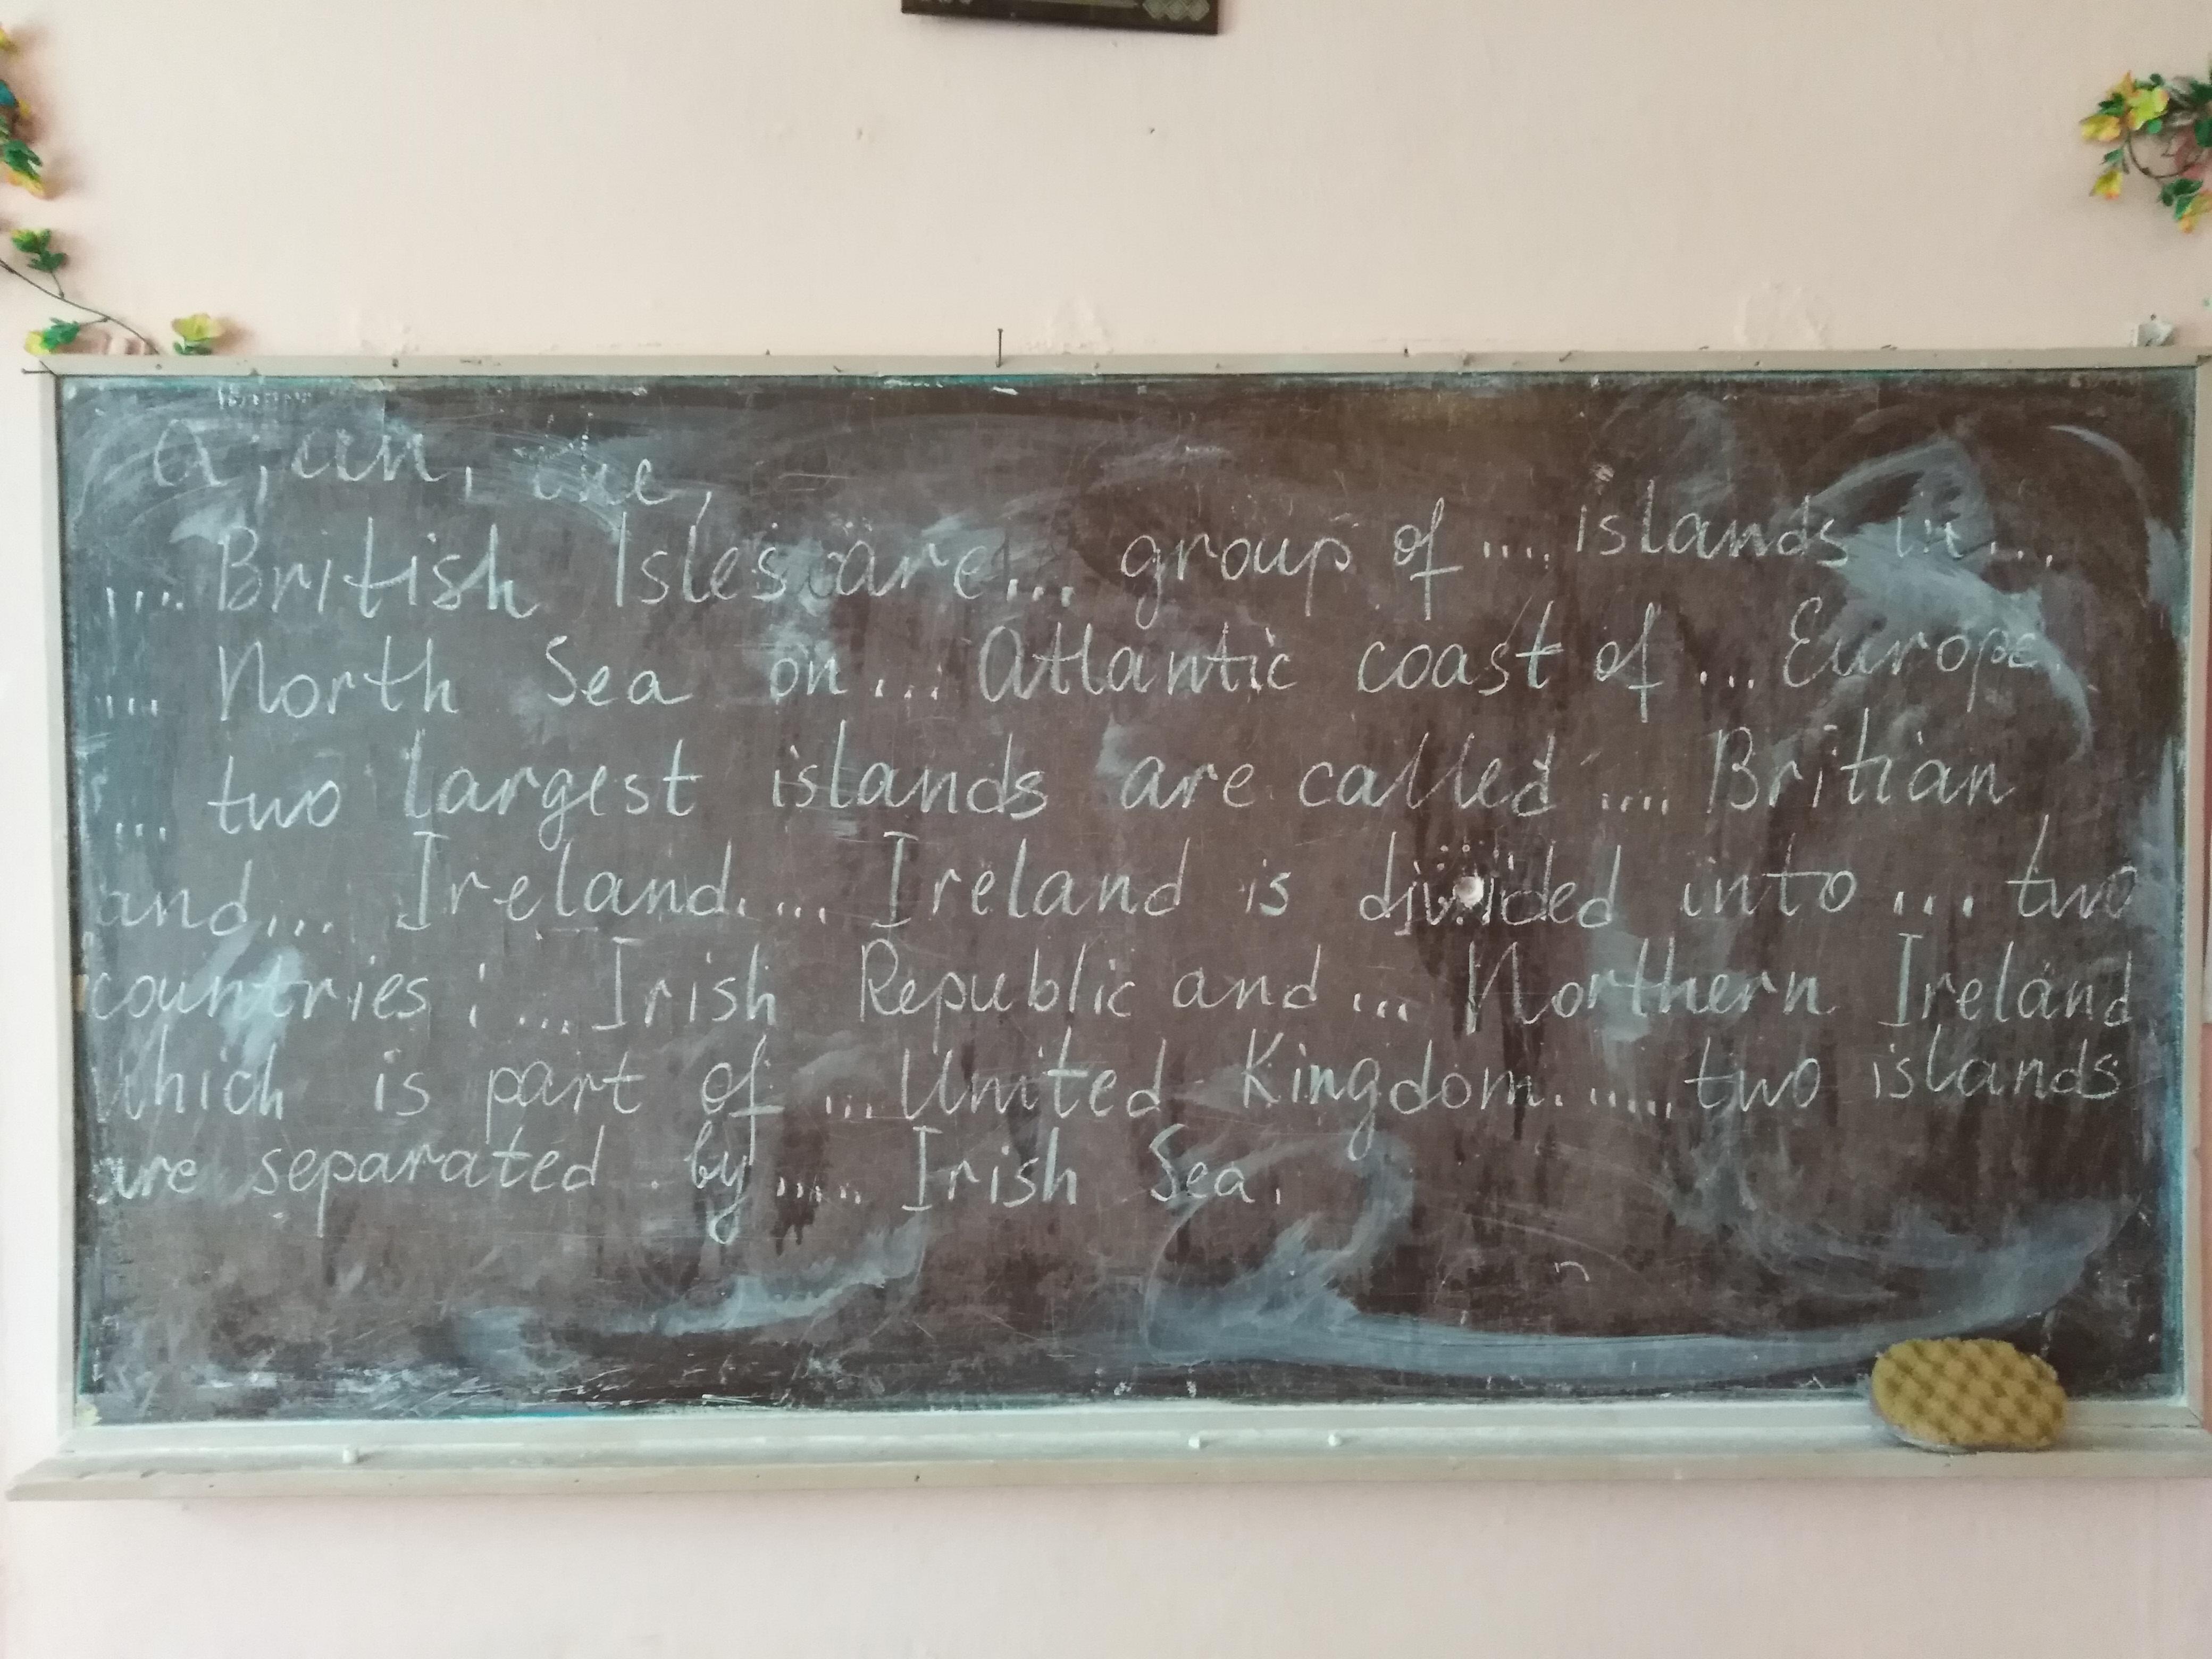 a, an, the,
.... British Isles are... group of .... islands in...
.... North Sea on... Atlantic coast of ... Europe.
... two largest islands are called .... Britian
and... Ireland. ... Ireland is divided into ... two
countries: ... Irish Republic and ... Northern Ireland
which is part of ... United Kingdom. ..... two islands
are separated by ..... Irish Sea.